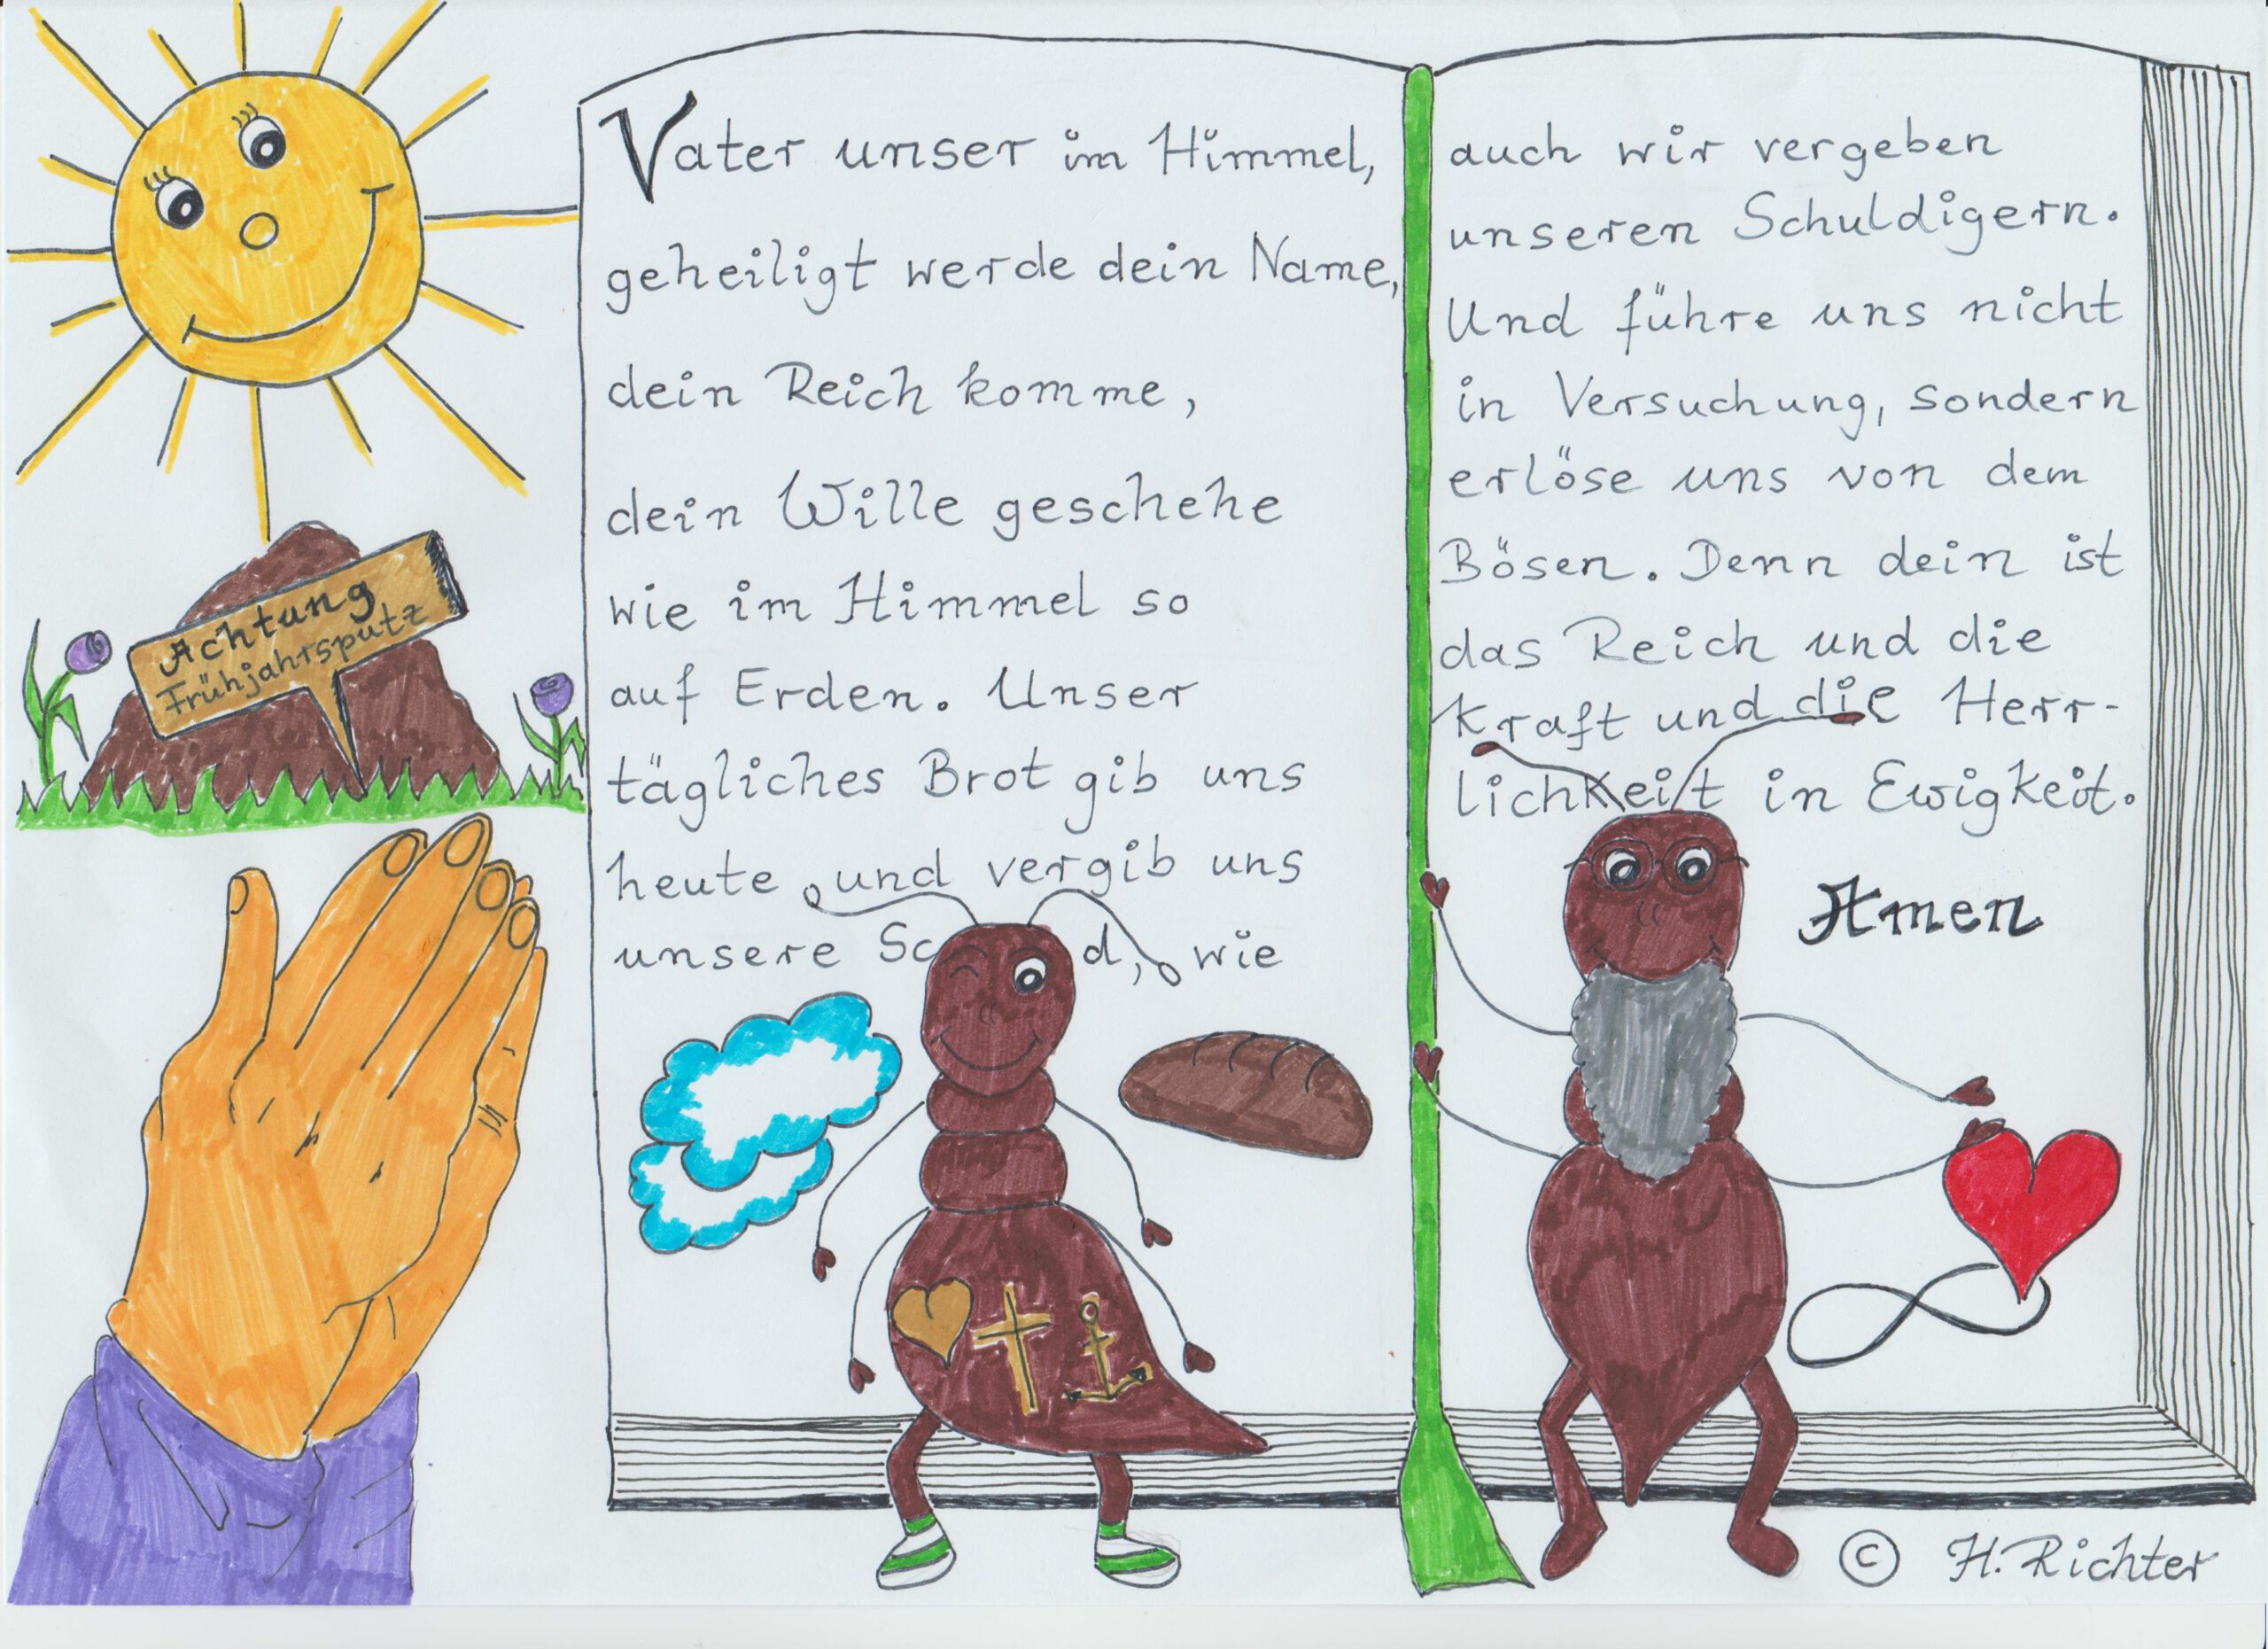 Achtung
Frühjahrsputz
Vater unser im Himmel,
geheiligt werde dein Name,
dein Reich komme,
dein Wille geschehe
wie im Himmel so
auf Erden. Unser
tägliches Brot gib uns
heute und vergib uns
unsere Sc d, wie
auch wir vergeben
unseren Schuldigern.
Und führe uns nicht
in Versuchung, sondern
erlöse uns von dem
Bösen. Denn dein ist
das Reich und die
Kraft und die Herr-
lichkeit in Ewigkeit.
Amen
© H. Richter